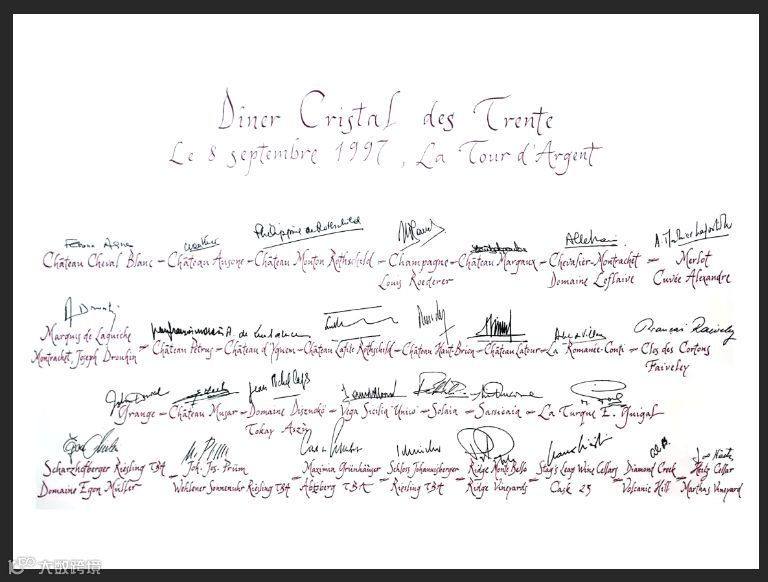 Dîner Cristal des Trente
Le 8 septembre 1997, La Tour d'Argent
Philippine de Rothschild
Château Cheval Blanc – Château Ausone – Château Mouton Rothschild – Champagne – Château Margaux – Chevalier-Montrachet – Merlot
Louis Roederer Domaine Leflaive Cuvée Alexandre
A. Drouhin
A. de Lur Saluces
François Faiveley
Marquis de Laguiche – Château Pétrus – Château d'Yquem – Château Lafite Rothschild – Château Haut-Brion – Château Latour – La Romanée-Conti – Clos des Cortons
Montrachet Joseph Drouhin Faiveley
Grange – Château Musar – Domaine Disznókő – Vega Sicilia "Unico" – Solaia – Sassicaia – La Turque E. Guigal
Tokay Aszú
Egon Müller
Scharzhofberger Riesling TBA – Joh. Jos. Prüm – Maximin Grünhäuser – Schloss Johannisberger – Ridge Monte Bello – Stag's Leap Wine Cellars – Diamond Creek – Heitz Cellar
Domaine Egon Müller Wehlener Sonnenuhr Riesling TBA Abtsberg TBA Riesling TBA Ridge Vineyards Cask 23 Volcanic Hill Marthas Vineyard
大数跨境